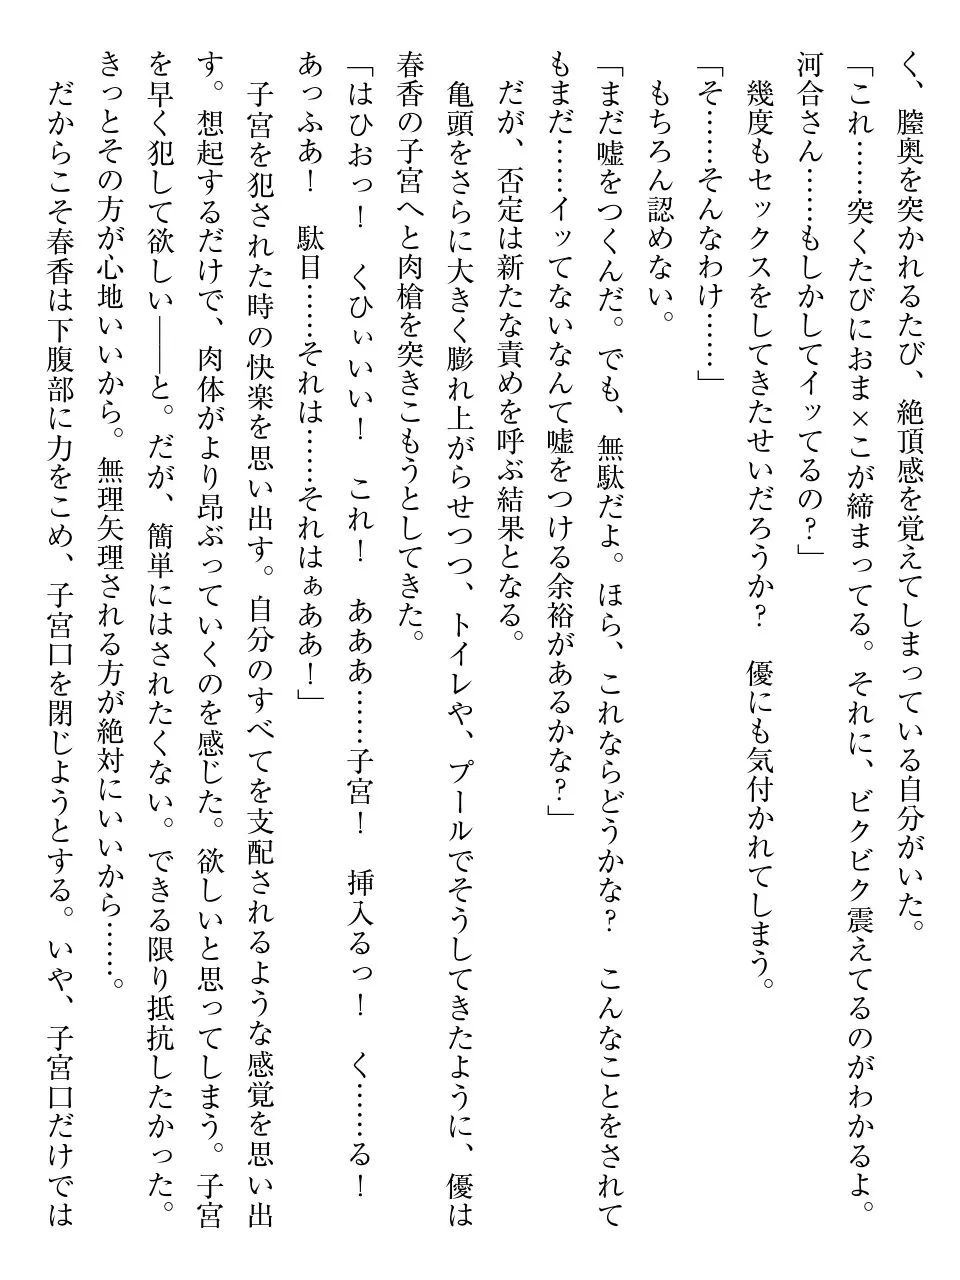 く、膣奥を突かれるたび、絶頂感を覚えてしまっている自分がいた。
「これ……突くたびにおま×こが締まってる。それに、ビクビク震えてるのがわかるよ。
河合さん……もしかしてイッてるの？」
幾度もセックスをしてきたせいだろうか？　優にも気付かれてしまう。
「そ……そんなわけ……」
もちろん認めない。
「まだ嘘をつくんだ。でも、無駄だよ。ほら、これならどうかな？　こんなことをされて
もまだ……イッてないなんて嘘をつける余裕があるかな？」
だが、否定は新たな責めを呼ぶ結果となる。
亀頭をさらに大きく膨れ上がらせつつ、トイレや、プールでそうしてきたように、優は
春香の子宮へと肉槍を突きこもうとしてきた。
「はひおっ！　くひぃいい！　これ！　あああ……子宮！　挿入るっ！　く……る！
あっふあ！　駄目……それは……それはぁああ！」
子宮を犯された時の快楽を思い出す。自分のすべてを支配されるような感覚を思い出
す。想起するだけで、肉体がより昂ぶっていくのを感じた。欲しいと思ってしまう。子宮
を早く犯して欲しい――と。だが、簡単にはされたくない。できる限り抵抗したかった。
きっとその方が心地いいから。無理矢理される方が絶対にいいから……。
だからこそ春香は下腹部に力をこめ、子宮口を閉じようとする。いや、子宮口だけでは